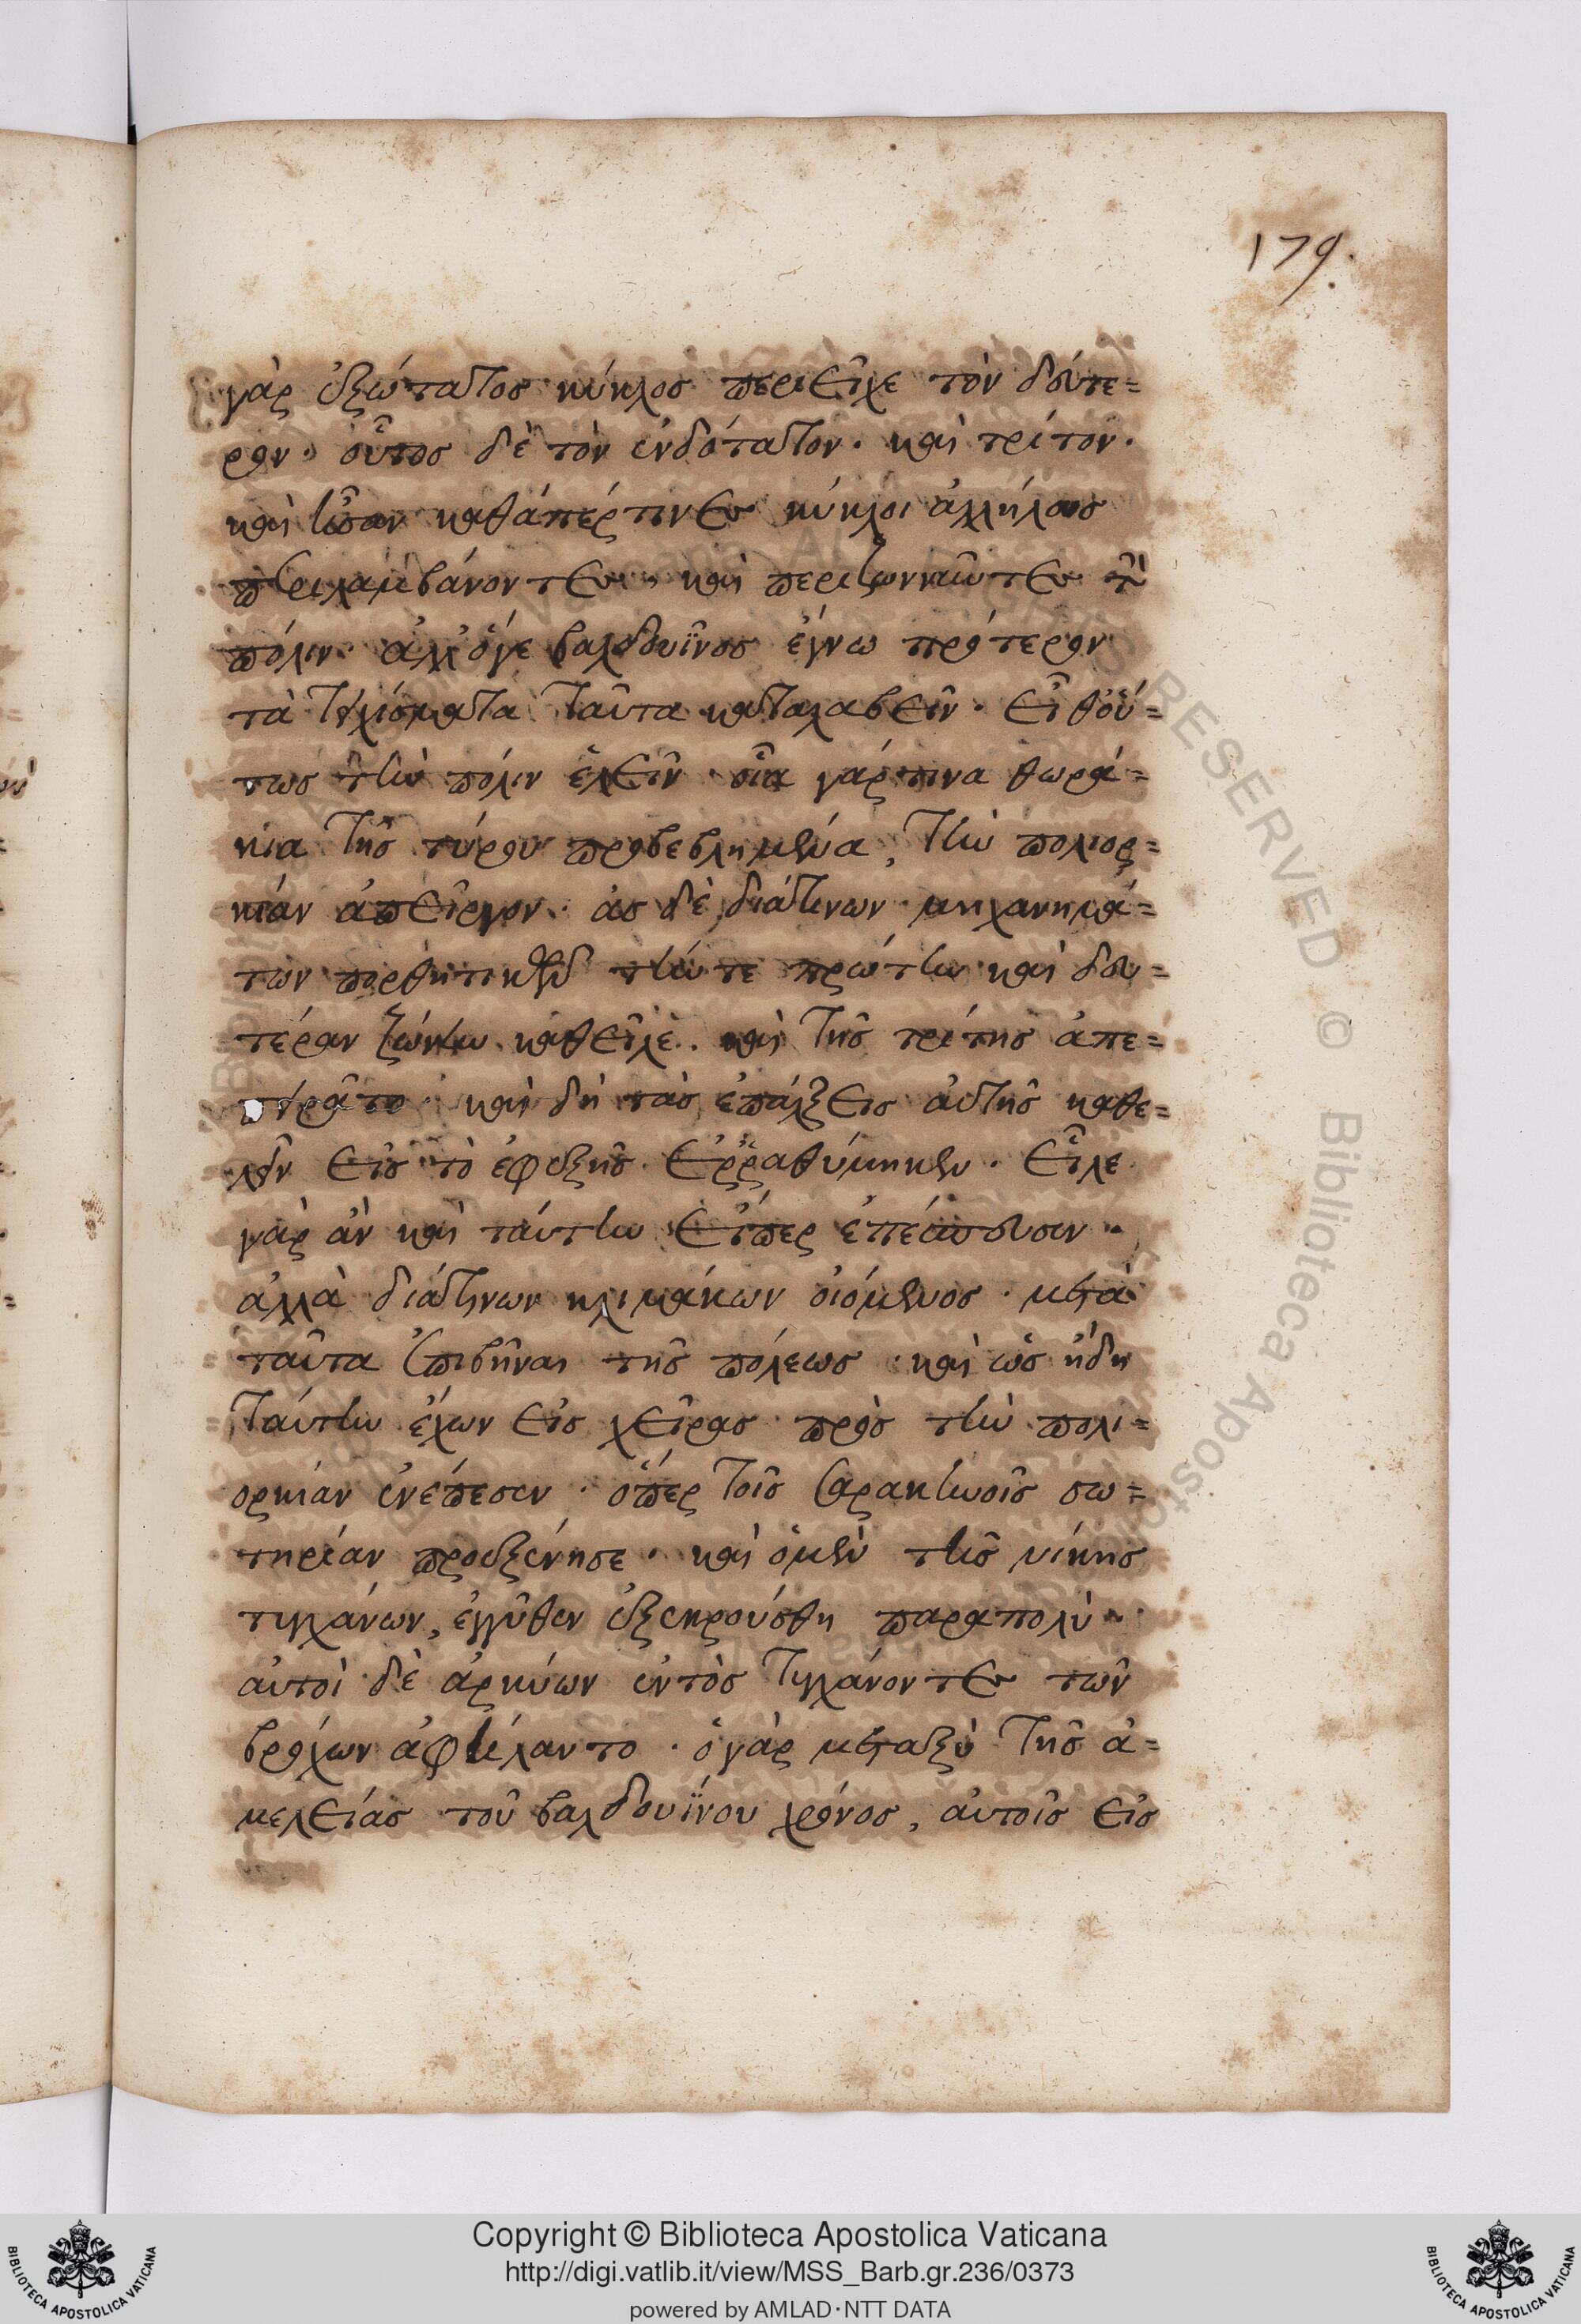 179.
γὰρ ἐξώτατος κύκλος περιεῖχε τὸν δεύτε=
ρον· οὗτος δὲ τὸν ἐνδότατον· καὶ τρίτον·
καὶ ἦσαν καθάπέρ τινες κύκλοι ἀλλήλους
περιλαμβάνοντες, καὶ περιζωννῦντες τὴν
πόλιν· ἀλλ' ὅγε βαλδουῖνος ἔγνω πρότερον
τὰ τειχίσματα ταῦτα καταλαβεῖν· εἶθ' οὕ=
τως τὴν πόλιν ἑλεῖν· οἷα γάρ τινα θωρά=
κια τῆς τύρου προβεβλημένα, τὴν πολιορ=
κίαν ἀπεῖργον· ἃς δὲ διά τινων μηχανημά=
των πορθητικῶν τήν τε πρώτην καὶ δευ=
τέραν ζώνην καθεῖλε· καὶ τῆς τρίτης ἀπε=
πειρᾶτο· καὶ δὴ τὰς ἐπάλξεις αὐτῆς καθε=
λὼν εἰς τὸ ἐφεξῆς ἐρῥαθύμηκεν· εἷλε
γὰρ ἂν καὶ ταύτην εἴπερ ἐπέσπευσεν·
ἀλλὰ διά τινων κλιμάκων οἰόμενος· μετὰ
ταῦτα ἐπιβῆναι τῆς πόλεως· καὶ ὡς ἤδη
ταύτην ἔχων εἰς χεῖρας πρὸς τὴν πολι=
ορκίαν ἐνέπεσεν· ὅπερ τοῖς σαρακηνοῖς σω=
τηρίαν προεξένησε· καὶ ὁ μὲν τῆς νίκης
τυγχάνων, ἐγγῦθεν ἐξεκρούσθη παραπολύ·
αὐτοὶ δὲ ἀρκύων ἐντὸς τυγχάνοντες τῶν
βρόχων ἀφείλαντο· ὁ γὰρ μεταξὺ τῆς ἀ=
μελείας τοῦ βαλδουΐνου χρόνος, αὐτοῖς εἰς
Copyright © Biblioteca Apostolica Vaticana
http://digi.vatlib.it/view/MSS_Barb.gr.236/0373
powered by AMLAD·NTT DATA
BIBLIOTECA APOSTOLICA VATICANA
BIBLIOTECA APOSTOLICA VATICANA